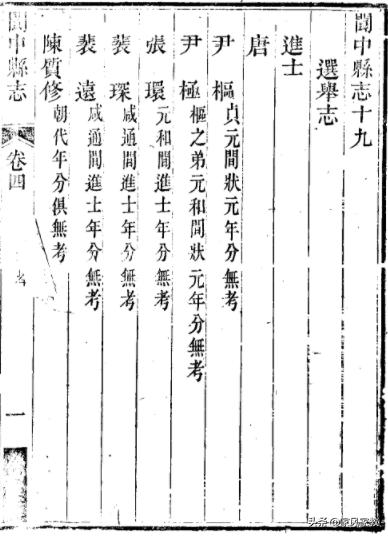 閬中縣志十九
選舉志
進士
唐
尹樞 貞元間狀元年分無考
尹極 樞之弟元和間狀元年分無考
張環 元和間進士年分無考
裴琛 咸通間進士年分無考
裴遠 咸通間進士年分無考
陳質修 朝代年分俱無考
閬中縣志
卷四
一
头条